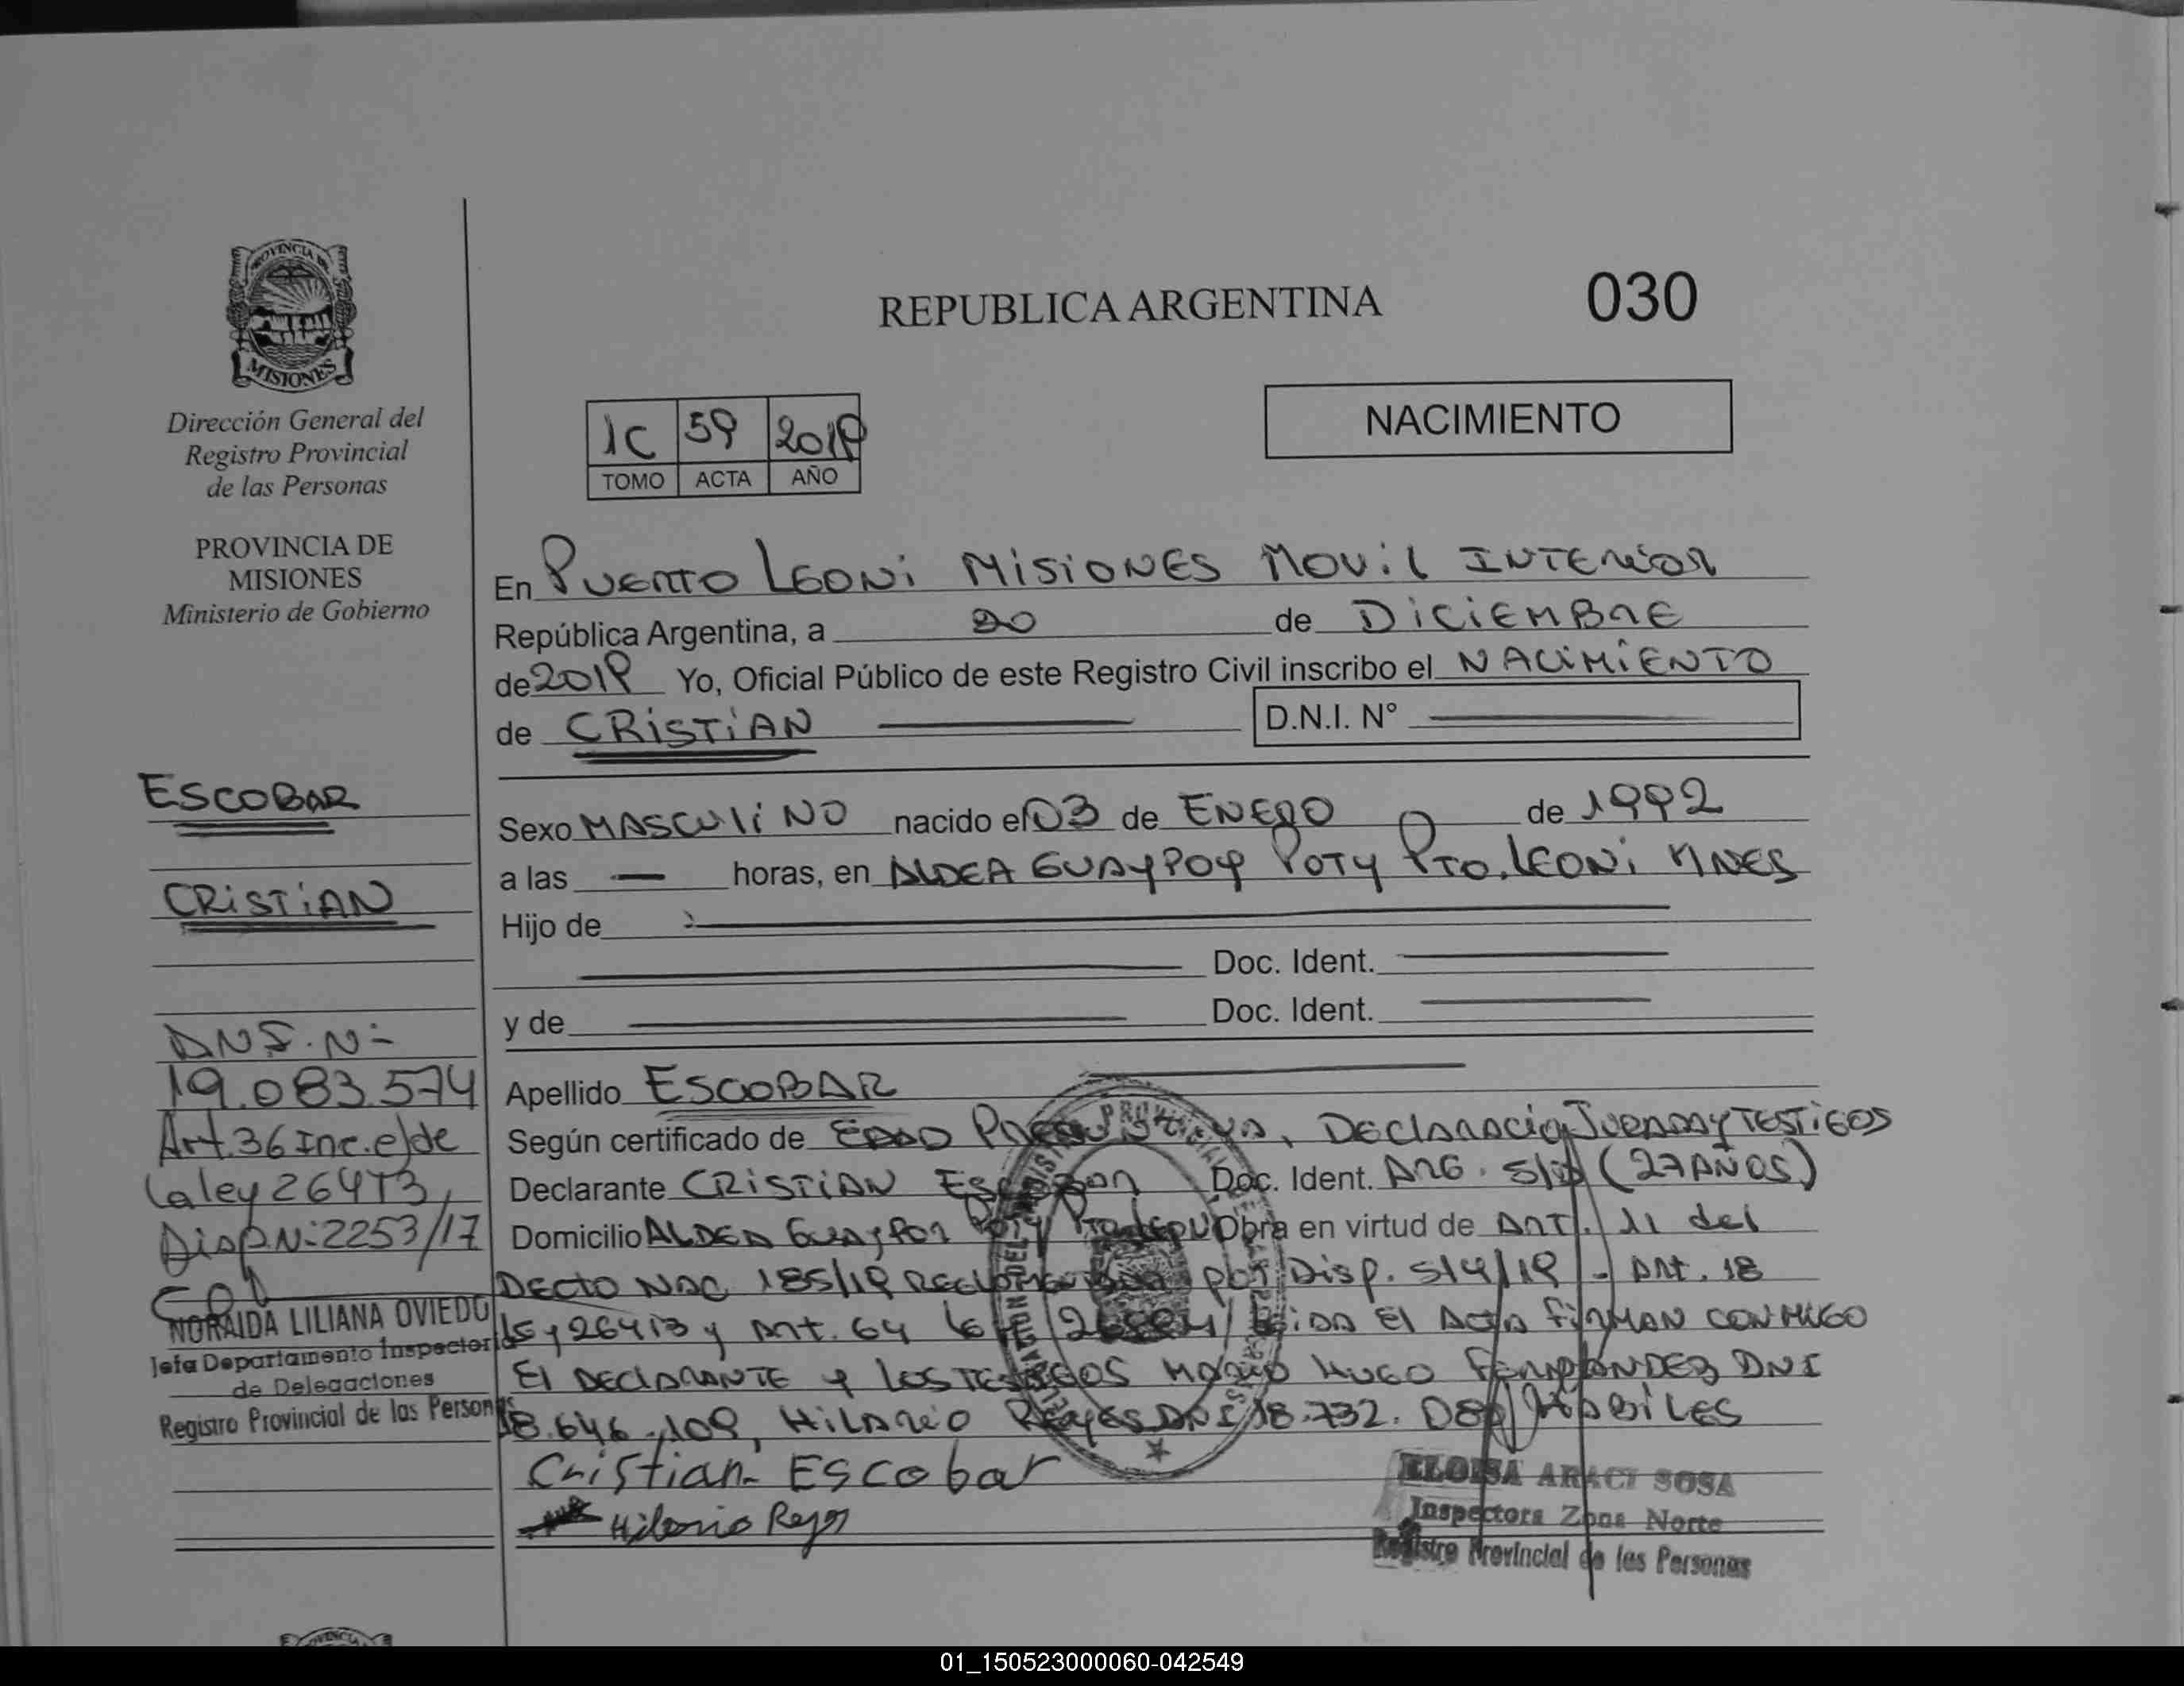 PROVINCIA DE
MISIONES
Dirección General del
Registro Provincial
de las Personas
PROVINCIA DE
MISIONES
Ministerio de Gobierno
REPUBLICA ARGENTINA
030
1C 59 2019
TOMO ACTA AÑO
NACIMIENTO
En PUERTO LEONI MISIONES MOVIL INTERIOR
República Argentina, a 20 de DICIEMBRE
de 2019 Yo, Oficial Público de este Registro Civil inscribo el NACIMIENTO
de CRISTIAN D.N.I. N°
Sexo MASCULINO nacido el 03 de ENERO de 1992
a las — horas, en ALDEA GUAYPOY POTY PTO. LEONI MNES
Hijo de
Doc. Ident.
y de Doc. Ident.
Apellido ESCOBAR
Según certificado de EDAD DECLARACION JURADA Y TESTIGOS
Declarante CRISTIAN Doc. Ident. ARG. S/ID (27 AÑOS)
Domicilio ALDEA GUAYPOY POTY Obra en virtud de ART. 11 del
DECTO NAC 185/19 por Disp. 514/19 - ART. 18
Ley 26413 y ART. 64 EL ACTA FIRMAN CONMIGO
El DECLARANTE y LOS TESTIGOS HUGO FERNANDEZ DNI
18.646.109, HILARIO REYES DNI 18.732. HABILES
Cristian Escobar
Hilario Reyes
ELOISA ARACI SOSA
Inspectora Zona Norte
Registro Provincial de las Personas
ESCOBAR
CRISTIAN
DNI. N-
19.083.574
Art. 36 Inc. e/de
la ley 26413,
Disp N: 2253/17
NORAIDA LILIANA OVIEDO
Jefa Departamento Inspector
de Delegaciones
Registro Provincial de las Personas
01_150523000060-042549